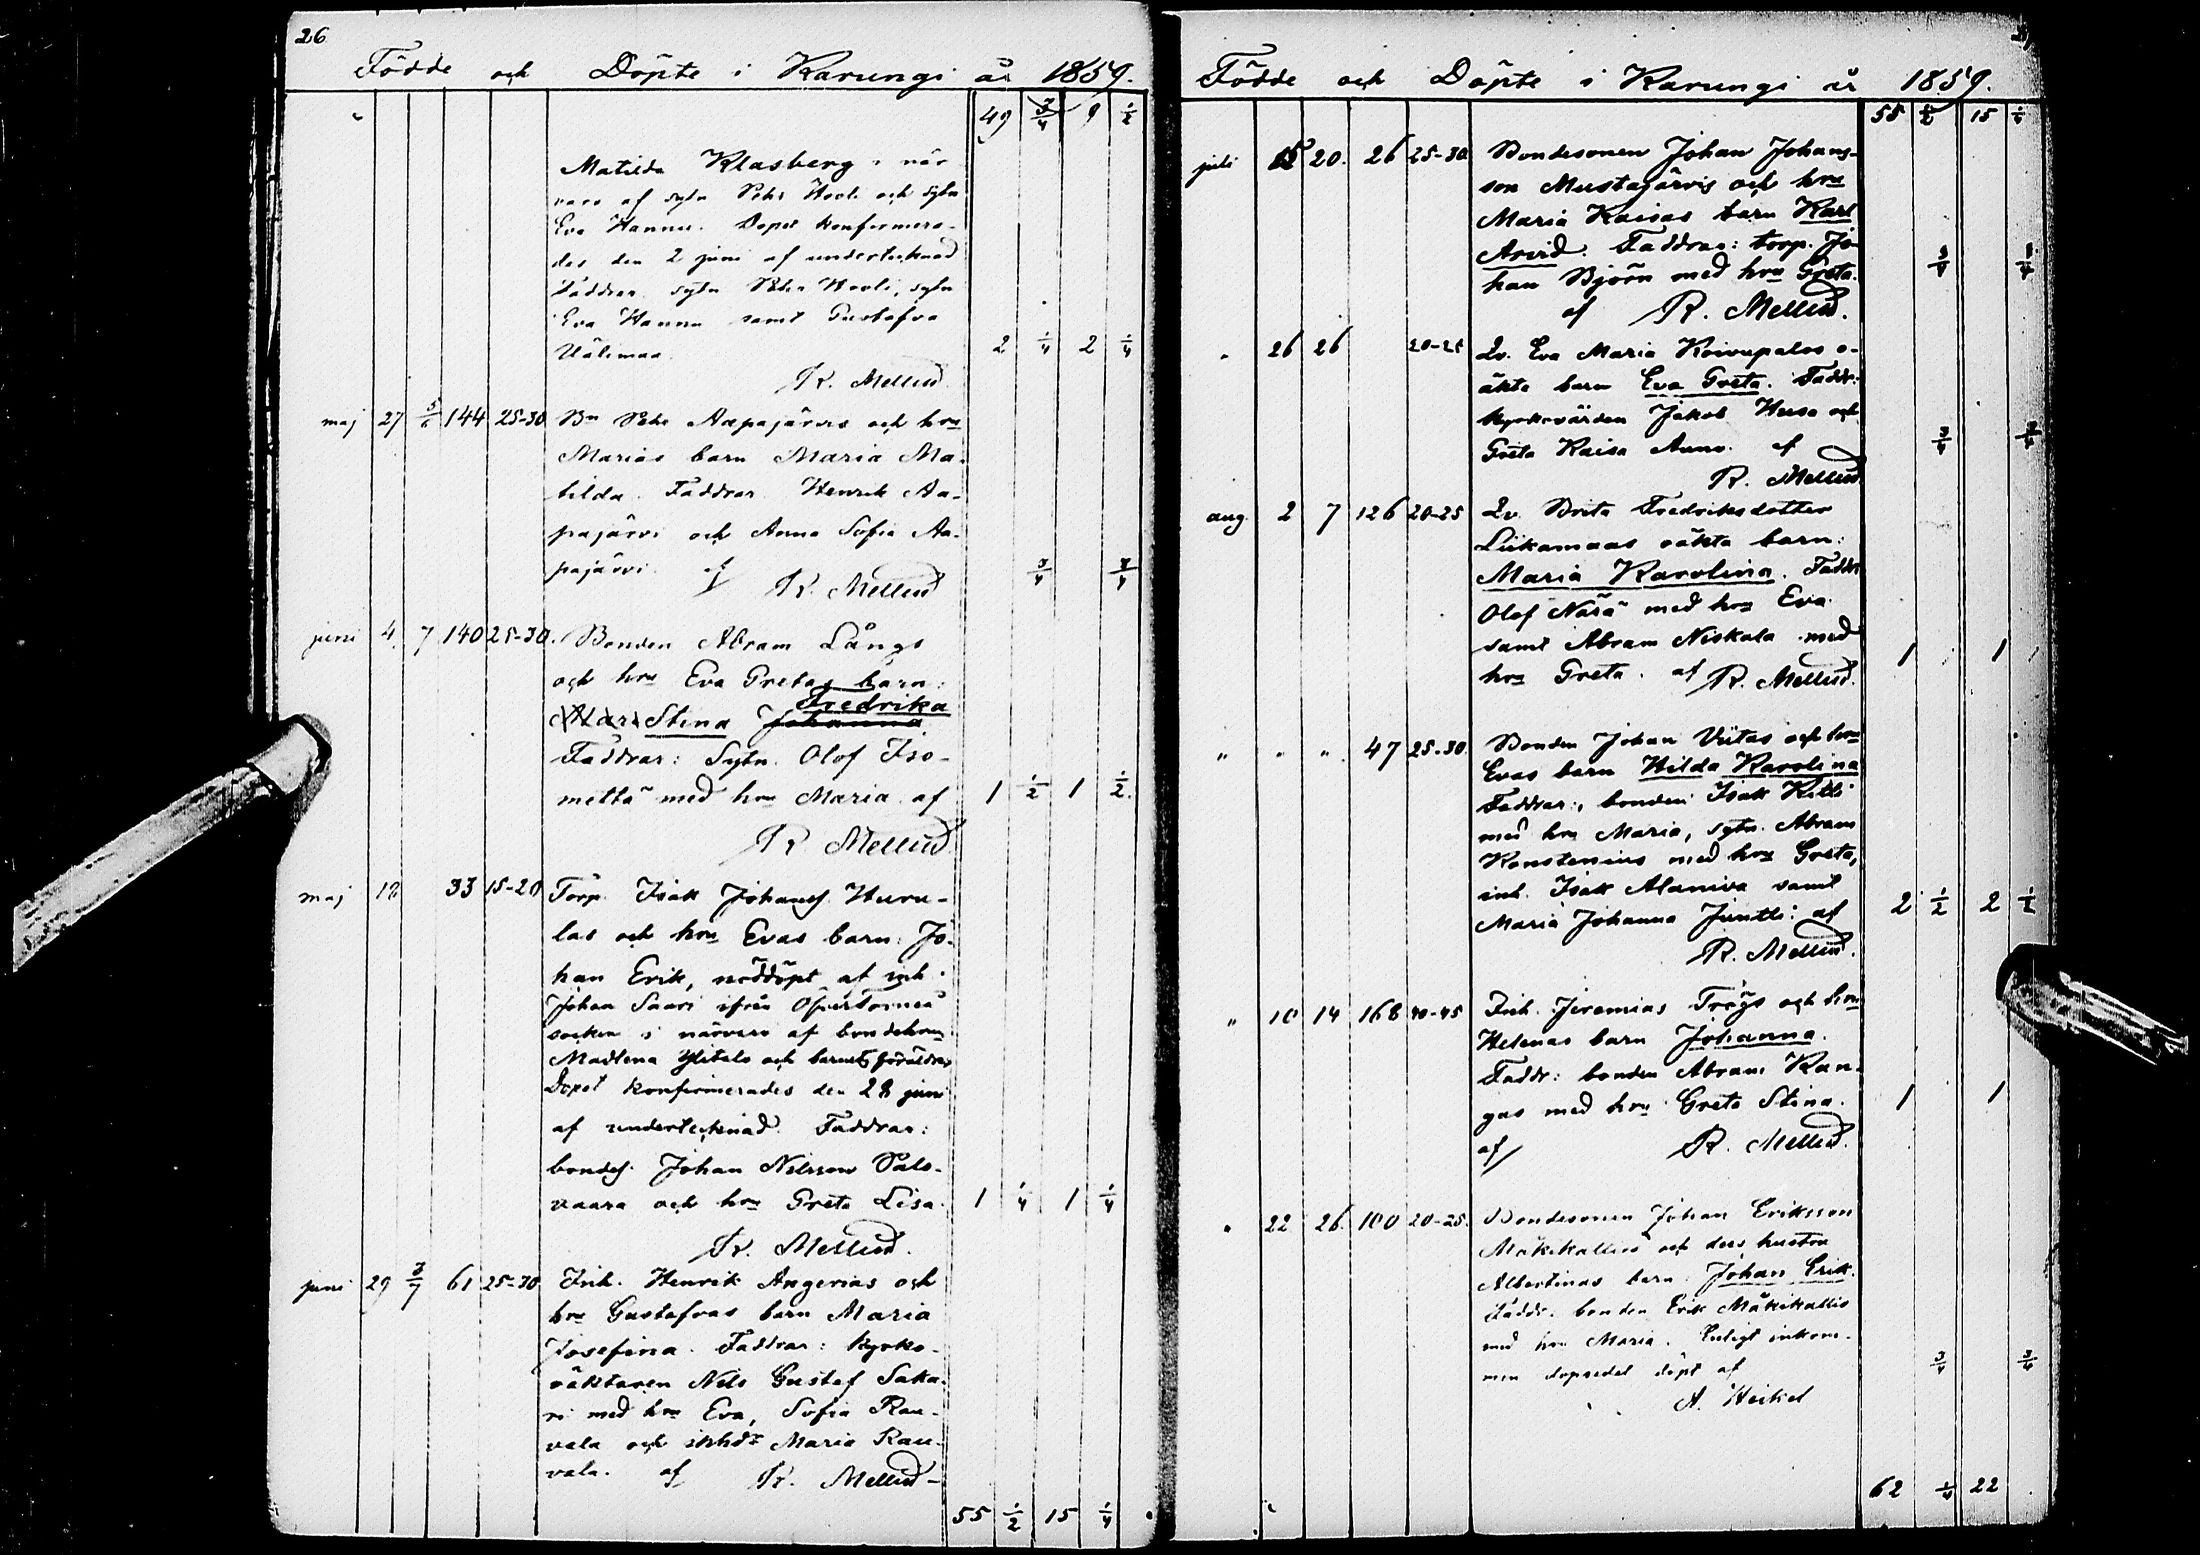 26
Födde och Döpte i Karungi år 1859.
49 3/4 9 1/2
Matilda Klasberg i när-
varo af sytn Pehr Hooli och sytn
Eva Hannu. Dopet konfirmera-
des den 2 juni af undertecknad
Faddrar sytn Pehr Hooli, sytn
Eva Hannu samt Gustafva
Välimaa. 2 1/4 2 1/4
R. Mellud
maj 27 5/6 144 25-30 Bn Pehr Aapajärvis och hru
Marias barn Maria Ma-
tilda. Faddrar Henrik Aa-
pajärvi och Anna Sofia Aa-
pajärvi. af 3/4 3/4
R. Mellud
juni 4. 7 140 25-30. Bonden Abram Långs
och hru Eva Gretas barn:
Fredrika
Stina Johanna
Faddrar: Sytn. Olof Iso-
mettä med hru Maria. af 1 1/2 1 1/2.
R Mellud
maj 18 33 15-20 Torp. Isak Johans. Huru-
las och hru Evas barn: Jo-
han Erik, nöddöpt af inh.
Johan Saari ifrån Öfvertorneå
socken i närvaro af bondehru
Madlena Ylitalo och barnets föräldrar
Dopet konfirmerades den 28 juni
af undertecknad. Faddrar:
bondes. Johan Nilsson Palo-
vaara och hru Greta Lisa. 1 1/4 1 1/4
R. Mellud.
juni 29 3/7 61 25-30 Inh. Henrik Angerias och
hru Gustafvas barn Maria
Josefina. Faddrar: kyrko-
väktaren Nils Gustaf Saka-
ri med hru Eva, Sofia Rau-
vala och Maria Rau-
vala. af R. Mellud-
55 1/2 15 1/4
Födde och Döpte i Karungi år 1859.
55 1/2 15 1/4
juli 15 20. 26 25-30 Bondesonen Johan Johans-
son Mustajärvis och hru
Maria Kaisas barn Karl
Arvid. Faddrar: torp. Jo-
han Björn med hru Greta. 3/4 3/4
af R. Mellud.
" 26 26 20-25 Qv. Eva Maria Koivupalos o-
äkta barn Eva Greta. Faddr:
kyrkovärden Jakob Husa och
Greta Kaisa Anno. af 3/4 3/4
R. Mellud
aug. 2 7 126 20-25 Qv. Brita Fredriksdotter
Liikamaas oäkta barn:
Maria Karolina. Faddr
Olof Närä med hru Eva
samt Abram Niskala med
hru Greta. af R. Mellud. 1 1
" " " 47 25-30 Bonden Johan Viitas och hru
Evas barn Hilda Karolina
Faddrar: bonden Isak Kitti
med hru Maria, sytn. Abram
Konstenius med hru Greta,
inh. Isak Alaniva samt
Maria Johanna Juntti: af 2 1/2 2 1/2
R. Mellud.
" 10 14 168 40-45 Inh. Jeremias Trögs och hru
Helenas barn Johanna.
Faddr: bonden Abram Kan-
gas med hru Greta Stina. 1 1
af R. Mellud.
" 22 26. 100 20-25. Bondesonen Johan Eriksson
Mäkikallios och dess hustru
Albertinas barn Johan Erik.
Faddr. bonden Erik Mäkikallio
med hru Maria. Enligt inkom-
men dopsedel döpt af 3/4 3/4
A. Heikel
62 1/4 22